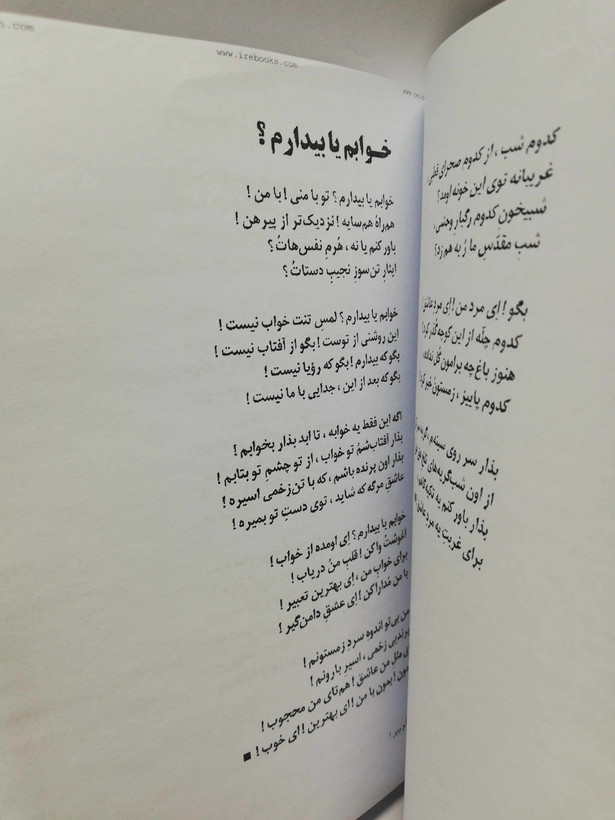 s.com
www.irebooks.com
خوابم یا بیدارم ؟
خوابم یا بیدارم ؟ تو با منی ! با من !
هم‌راهُ هم‌سایه ! نزدیک‌تر از پیرهن !
باور کنم یا نه ، هُرمِ نفس‌هاتُ ؟
ایثارِ تن‌سوزِ نجیبِ دستاتُ ؟
خوابم یا بیدارم ؟ لمسِ تنت خواب نیست !
این روشنی از توست ! بگو از آفتاب نیست !
بگو که بیدارم ! بگو که رؤیا نیست !
بگو که بعد از این ، جدایی با ما نیست !
اگه این فقط یه خوابه ، تا ابد بذار بخوابم !
بذار آفتاب‌شمُ تو خواب ، از تو چشمِ تو بتابم !
بذار اون پرنده باشم ، که با تن‌زخمی اسیره !
عاشقِ مرگه که شاید ، توی دستِ تو بمیره !
خوابم یا بیدارم ؟ اِی اومده از خواب !
آغوشتُ واکن ! قلبِ منُ دریاب !
برای خوابِ من ، اِی بهترین تعبیر !
با من مُدارا کن ! اِی عشقِ دامن‌گیر !
من بی‌تو اندوهِ سردِ زمستونم !
پرنده‌یی زخمی ، اسیرِ بارونم !
مثلِ من عاشق ! هم‌تای من محجوب !
بمون با من ! اِی بهترین ! اِی خوب !
کدوم شب ، از کدوم صحرای
غریبانه توی این خونه اومد ؟
شبیخونِ کدوم رگبارِ وحشی ،
شبِ مقدّسِ ما رُ به هم زد ؟
بگو ! اِی مردِ من ! اِی مردِ عاشق !
کدوم چلّه از این کوچه گُذر کرد ؟
هنوز باغ‌چه برامون گُل نداده ،
کدوم پاییز ، زمستونُ خبر کرد ؟
بذار سر روی سینه‌م
از اون شب‌گریه‌های تلخِ
بذار باور کنم یه تکیه‌گاهم
برای غربتِ یه مردِ عاشق